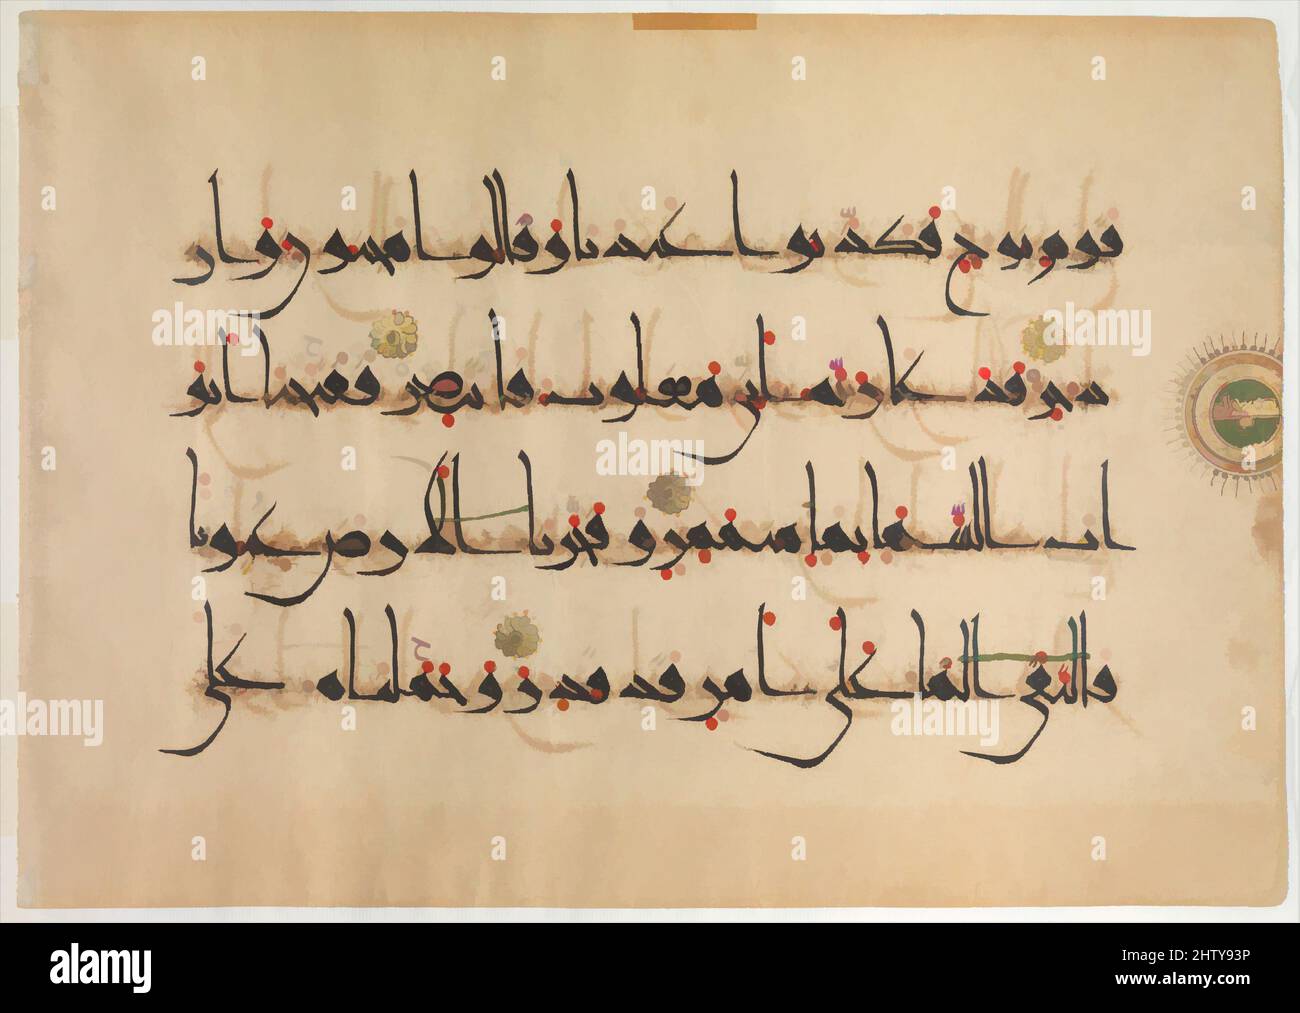 قوم نوح فكذبوا عبدنا وقالوا مجنون واز
دجر فدعا ربه انى مغلوب فانتصر ففتحنا ابو
اب السما بما منهمر وفجرنا الارض عيونا
فالتقى الما على امر قد قدر وحملنه على
alamy
Image ID: 2HTY93P
www.alamy.com